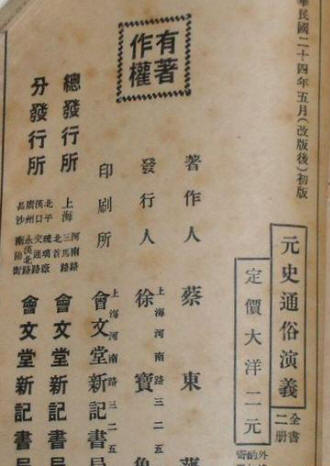 華民國二十四年五月(改版後)初版
元史通俗演義
全書二册
定價大洋二元
外
著作人 蔡東
發行人
上海河南路三二五
徐寶
印刷所
上海河南路三二五
會文堂新記書局
有著
作權
總發行所
上海
河南路
三馬路
北首
會文堂新記書局
分發行所
北平 琉璃廠
漢口 交通路
廣州 永漢北路
長沙 南陽街
會文堂新記書局